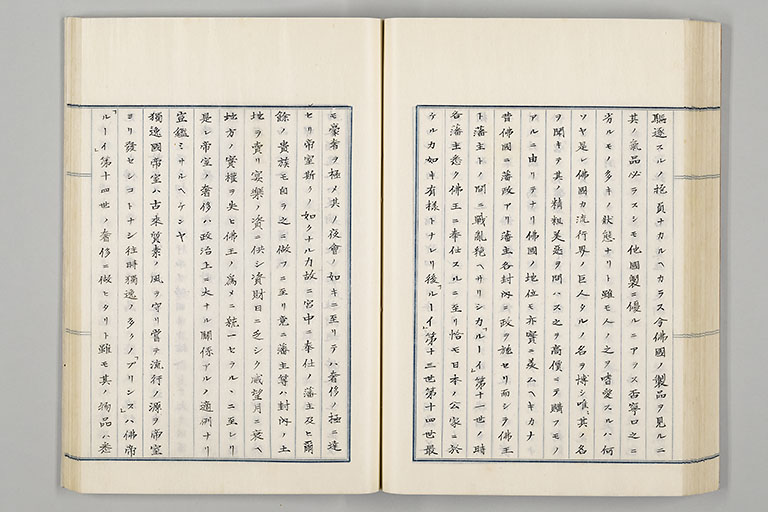 驅逐スルノ抱負ナカルヘカラス今佛國ノ製品ヲ見ルニ
其ノ氣品必ラスシモ他國製ニ優ルニアラス否寧ロ之ニ
劣ルモノ多キノ狀態ナリト雖モ人ノ之ヲ嗜愛スルハ何
ソヤ是レ佛國カ流行界ノ巨人タルノ名ヲ博シ唯其ノ名
ヲ聞キテ其ノ精粗美惡ヲ問ハス之ヲ高價ニテ購フモノ
アルニ由リテナリ佛國ノ地位モ亦實ニ羨ムヘキカナ
昔佛國ニ藩政アリ藩主各封內ニ政ヲ施セリ而シテ佛王
ト藩主トノ間ニ戰亂絶ヘサリシカ「ルーイ」第十一世ノ時
各藩主悉ク佛王ニ奉仕スルニ至リ恰モ日本ノ公家ニ於
ケルカ如キ有樣トナレリ後「ルーイ」第十三世第十四世最
モ豪奢ヲ極メ其ノ夜會ノ如キニ至リテハ奢侈ノ極ニ達
セリ帝室斯クノ如クナルカ故ニ宮中ニ奉仕ノ藩主及ヒ爾
餘ノ貴族モ自ラ之ニ倣フニ至リ竟ニ藩主等ハ封內ノ土
地ヲ賣リ宴樂ノ資ニ供シ資財日ニ乏シク威望月ニ衰ヘ
地方ノ實權ヲ失ヒ佛王ノ爲メニ統一セラルヽニ至レリ
是レ帝室ノ奢侈ハ政治上ニ大ナル關係アルノ適例ナリ
豈鑑ミサルヘケンヤ
獨逸國帝室ハ古來質素ノ風ヲ守リ嘗テ流行ノ源ヲ帝室
ヨリ發セシコトナシ往時獨逸ノ多クノ「プリンス」ハ佛帝
「ルーイ」第十四世ノ奢侈ニ倣ヒタリト雖モ其ノ物品ハ悉